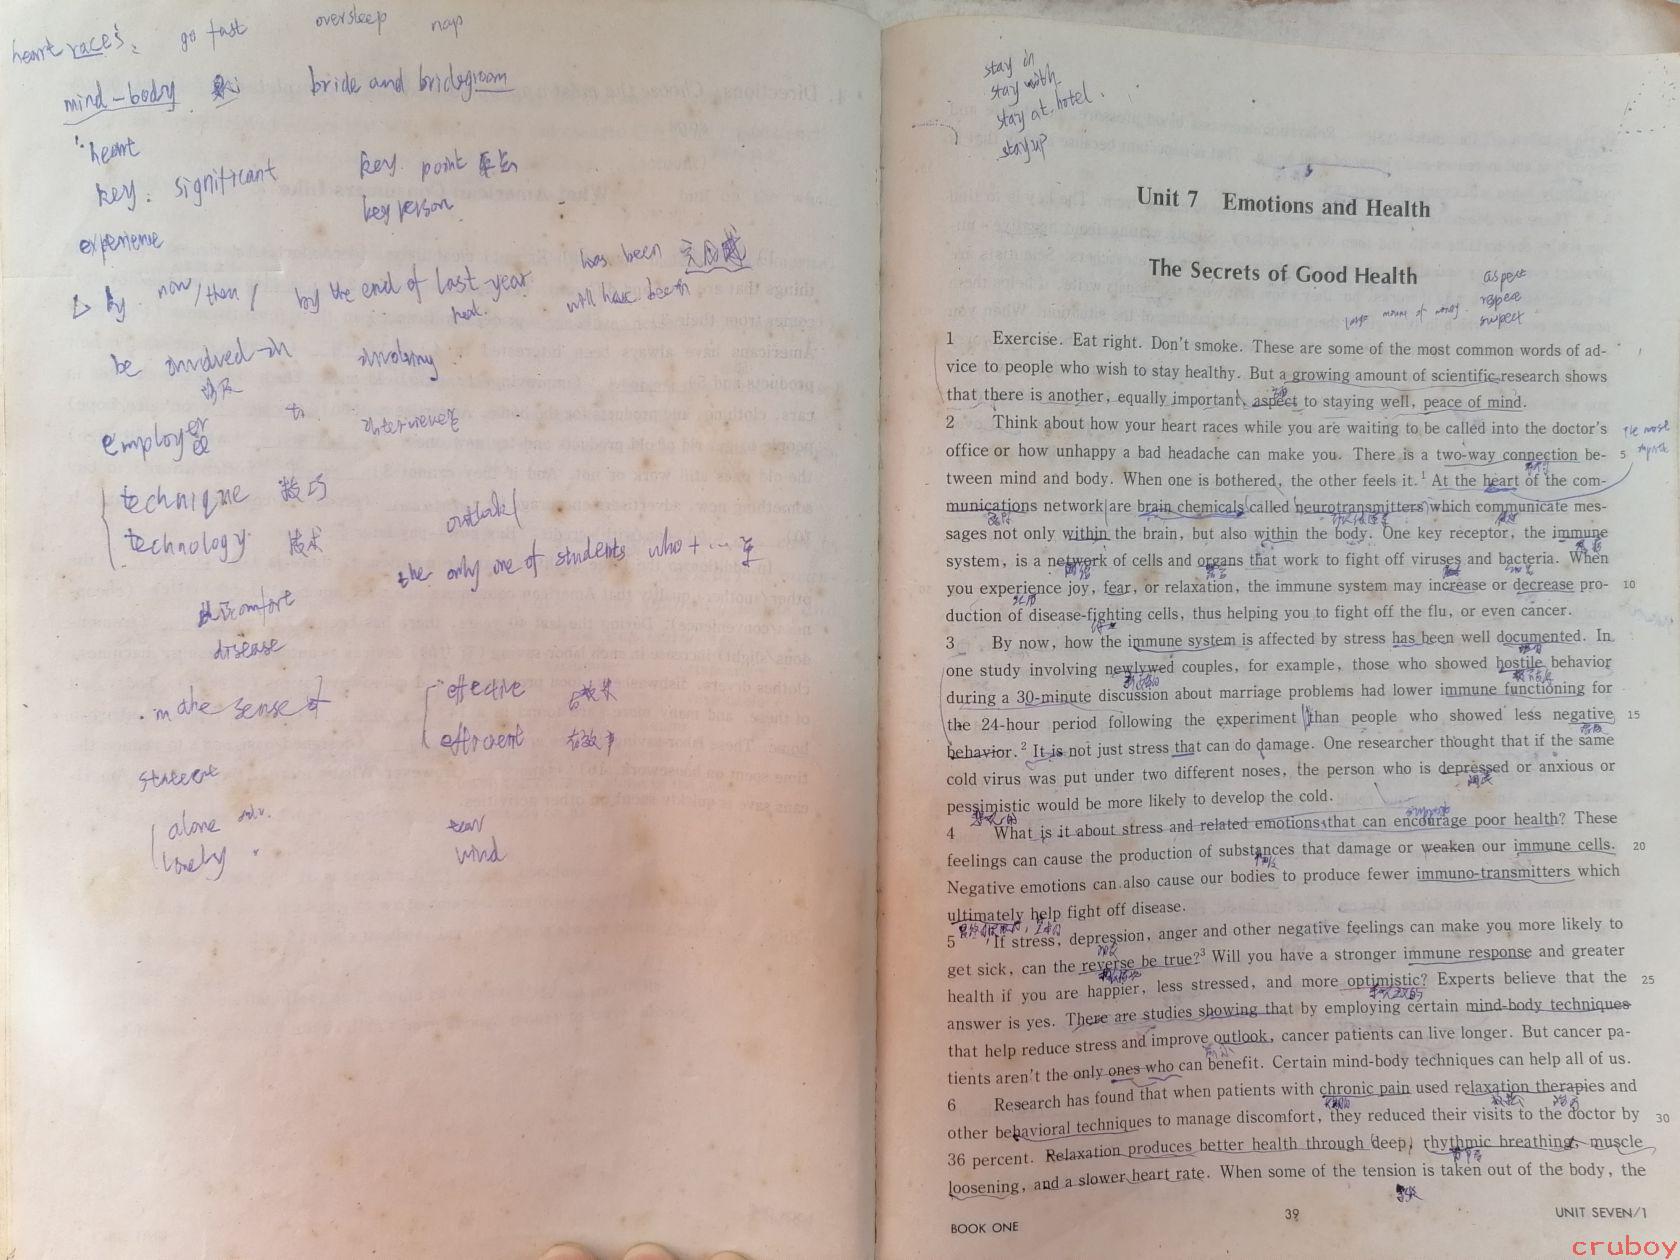 heart races, go fast oversleep nap
mind-body bride and bridegroom
heart
key: significant key point 重点
key person
experience
by now/then/ by the end of last year has been
next will have been
be involved in involving
涉及
employer
ee
to interviewee
technique 技巧
technology 技术
outlook
the only one of students who + ... 单
discomfort
disease
make sense of
effective 有效果
efficient 有效率
alone adv.
lonely
tear
wind
stay in
stay with
stay at hotel.
stay up
Unit 7 Emotions and Health
The Secrets of Good Health
aspect
respect
suspect
1 Exercise. Eat right. Don't smoke. These are some of the most common words of ad-
vice to people who wish to stay healthy. But a growing amount of scientific research shows
that there is another, equally important, aspect to staying well, peace of mind.
2 Think about how your heart races while you are waiting to be called into the doctor's
office or how unhappy a bad headache can make you. There is a two-way connection be- 5
tween mind and body. When one is bothered, the other feels it.1 At the heart of the com-
munications network are brain chemicals called neurotransmitters which communicate mes-
sages not only within the brain, but also within the body. One key receptor, the immune
system, is a network of cells and organs that work to fight off viruses and bacteria. When
you experience joy, fear, or relaxation, the immune system may increase or decrease pro- 10
duction of disease-fighting cells, thus helping you to fight off the flu, or even cancer.
3 By now, how the immune system is affected by stress has been well documented. In
one study involving newlywed couples, for example, those who showed hostile behavior
during a 30-minute discussion about marriage problems had lower immune functioning for
the 24-hour period following the experiment than people who showed less negative 15
behavior.2 It is not just stress that can do damage. One researcher thought that if the same
cold virus was put under two different noses, the person who is depressed or anxious or
pessimistic would be more likely to develop the cold.
4 What is it about stress and related emotions that can encourage poor health? These
feelings can cause the production of substances that damage or weaken our immune cells. 20
Negative emotions can also cause our bodies to produce fewer immuno-transmitters which
ultimately help fight off disease.
5 If stress, depression, anger and other negative feelings can make you more likely to
get sick, can the reverse be true?3 Will you have a stronger immune response and greater
health if you are happier, less stressed, and more optimistic? Experts believe that the 25
answer is yes. There are studies showing that by employing certain mind-body techniques
that help reduce stress and improve outlook, cancer patients can live longer. But cancer pa-
tients aren't the only ones who can benefit. Certain mind-body techniques can help all of us.
6 Research has found that when patients with chronic pain used relaxation therapies and
other behavioral techniques to manage discomfort, they reduced their visits to the doctor by 30
36 percent. Relaxation produces better health through deep, rhythmic breathing, muscle
loosening, and a slower heart rate. When some of the tension is taken out of the body, the
BOOK ONE 39 UNIT SEVEN/1
cruboy